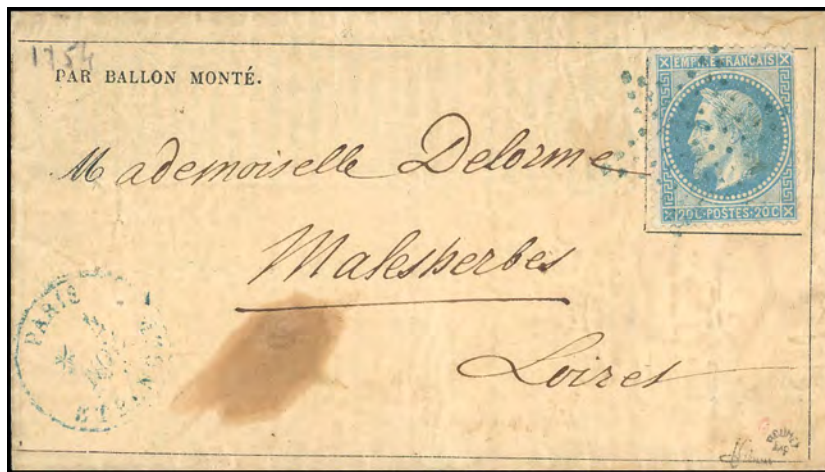 1754
PAR BALLON MONTÉ.
EMPIRE FRANÇAIS
20C-POSTES-20C
Mademoiselle Delorme
Malesherbes
Loiret
PARIS